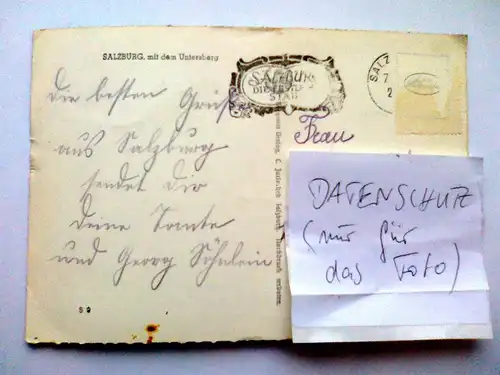 SALZBURG, mit dem Untersberg
Die besten Grüße
aus Salzburg
sendet Dir
deine Tante
und Georg Söhnlein
S 9
SALZBURG
DIE FESTSPIEL
STADT
SALZ
7
2
Frau
DATENSCHUTZ
(nur für
das Foto)